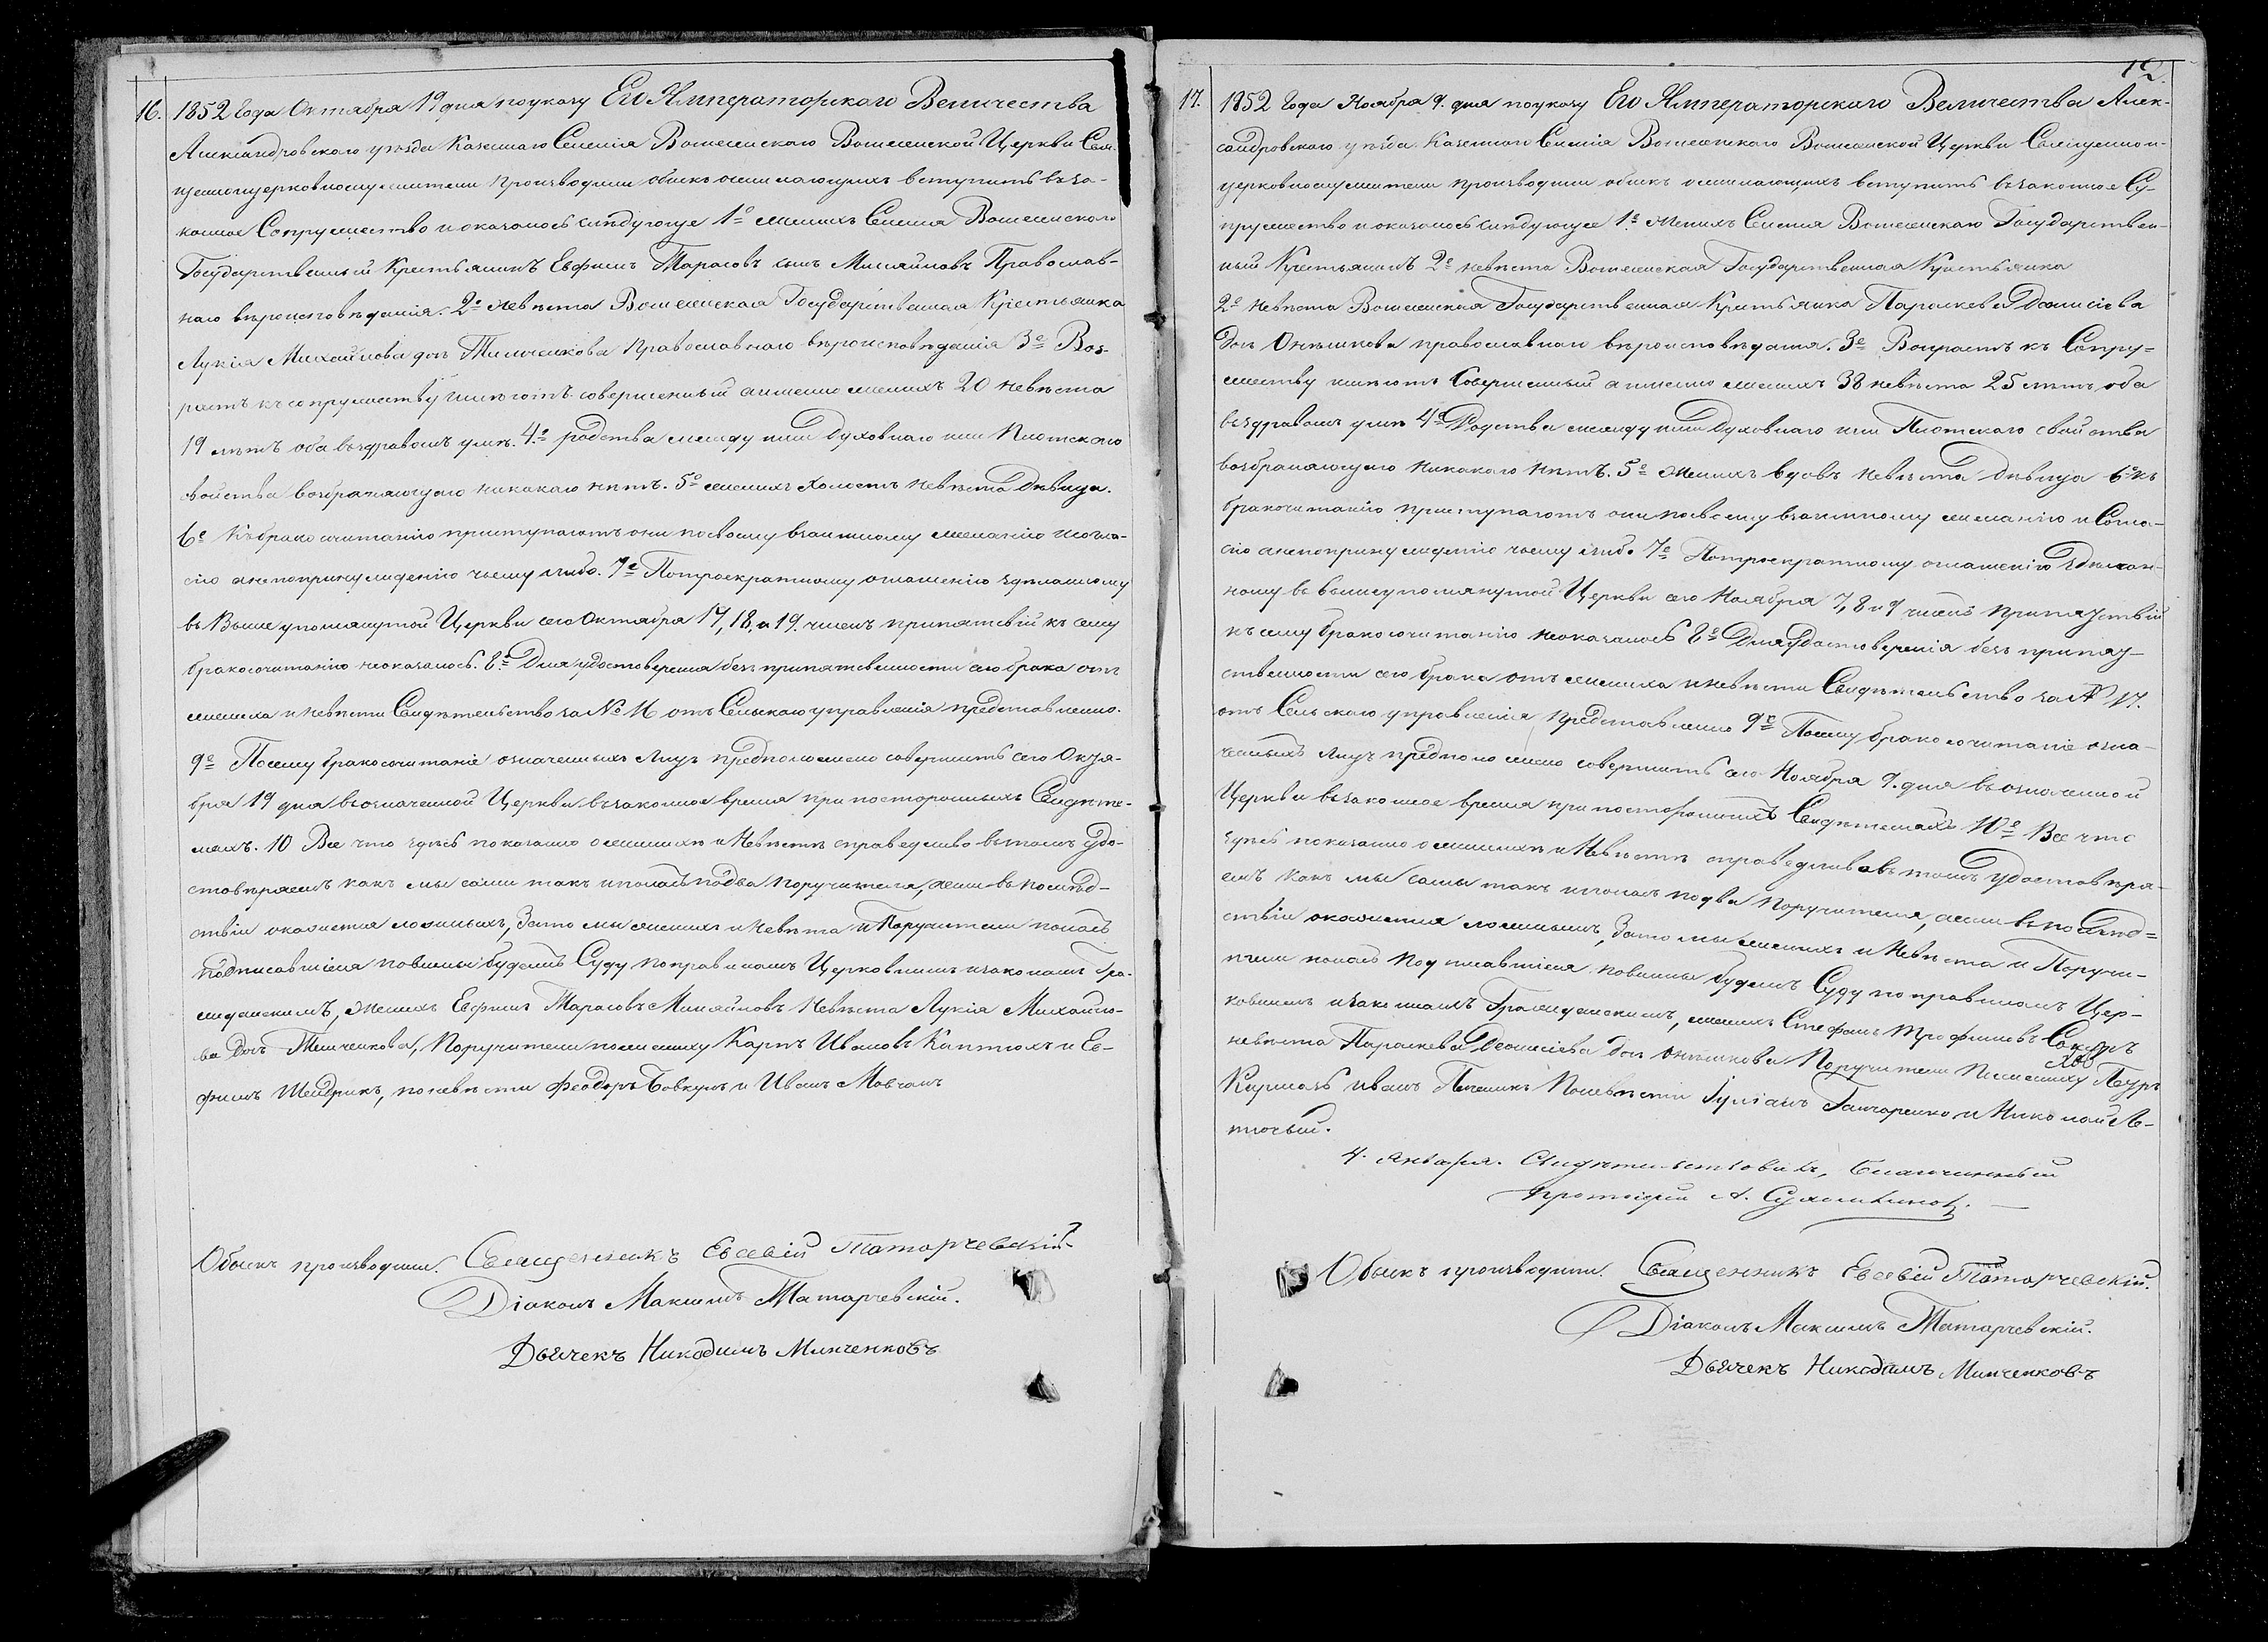 16. 1852 Года Октября 19 дня поуказу Его Императорскаго Величества
Александровскаго уѣзда Казеннаго Селенія Вознесенскаго Вознесенской Церкви Свя-
щенноцерковнослужители производили обыскъ ожелающихъ вступить взако-
конное Сопружество иоказалось слѣдующее 1е женихъ Селенія Вознесенскаго
Государственный Крестьянинъ Евфимъ Тарасовъ сынъ Православ-
наго вѣроисповѣданія. 2е невѣста Вознесенская Государственная Крестьянка
Лукія Михайлова дочь Правосławнаго вѣроисповѣданія 3е Воз-
растъ къ сопружеству имѣютъ совершенный аименно женихъ 20 невѣста
19 лѣтъ оба въздравомъ умѣ. 4е родства между ними духовнаго или Плотскаго
свойства возбраняющаго никакаго нѣтъ. 5е женихъ Холостъ невѣста Дѣвица.
6е Къбракосочитанію приступаютъ они посвоему взаимному желанію исогла-
сію анепопринужденію чьему либо. 7е Потроекратному оглашенію зделанному
въ Выше упомянутой Церкви сего Октября 17, 18, и 19. числъ припятствій къ сему
бракосочитанію неоказалось. 8е Для удостовѣренія безъ припятственности сего брака отъ
жениха и невѣсти Свидѣтельство за № 16 отъ Сельскаго управленія предстовленно.
9е Посему бракосочитаніе означенныхъ Лицъ предположенно совершить сего Октя-
бря 19 дня въозначенной Церкви въ законное время при постороннихъ Свидѣте-
ляхъ. 10 Все что здѣсь показанно оженихѣ и Невѣстѣ справедливо втомъ удо-
стовѣряемъ какъ мы сами такъ ипонасъ подва Поручителя, ежели въ послѣд-
ствіи окажется ложнымъ, Зато мы женихъ и Невѣста и Поручители понасъ
подписавшіеся повинны будемъ Суду поправиламъ Церковнымъ изаконамъ Гра-
жданскимъ, женихъ Евфимъ Тарасовъ Невѣста Лукія Михайло-
ва Дочь Поручители поженниху Карпъ Ивановъ и Ев-
фимъ Шендрикъ, поневѣсти Феодоръ Бовкунъ и Иванъ Мовчанъ
Обыскъ производили. Священникъ Евсевій Татарчевскій
Діаконъ Максимъ Татарчевскій.
Дьячекъ Никодимъ Минченковъ
12.
17. 1852 Года Ноября 9. дня поуказу Его Императорскаго Величества Алек-
сандровскаго уѣзда Казеннаго Селенія Вознесенскаго Вознесенской Церкви Священно-
церковнослужители производили обыскъ ожелающихъ вступить възаконное Су-
пружество иоказалось слѣдующее 1е Женихъ Селенія Вознесенскаго Государствен-
ный Крестьянинъ 2е невѣста Вознесенская Государственная Крестьянка
2е Невѣста Вознесенская Государственная Крестьянка Параскева Діонисіева
Дочь православнаго вѣроисповѣданія. 3е Возрастъ къ Сопру=
жеству имѣютъ Совершенный аименно женихъ 38 невѣста 25 лѣтъ, оба
въздравомъ умѣ 4е Родства между ними Духовнаго или Плотскаго свойства
возбраняющаго никакого нѣтъ. 5е Женихъ вдовъ Невѣста дѣвица 6е къ
бракочитанію приступаютъ они посвоему взаимному желанію и Согла-
сію анепопринужденію чьему либо 7е Потроекратному оглашенію Здѣлан-
ному въ вышеупомянутой Церкви сего Ноября 7, 8 и 9 числъ припятствій
къ сему бракосочитанію неоказалось 8е Для удостоверенія безъ припят-
ственности сего брака отъ жениха и невѣсти Свидѣтельство за № 17.
отъ Сельскаго управленія предстовленно 9е Посему бракосочитаніе озна-
ченныхъ лицъ предположенно совершить сего Ноября 9. дня въозначенной
Церкви възаконное время при постороннихъ Свидѣтеляхъ 10е Все что
здѣсь показанно оженихѣ и Невѣстѣ справедливо въ томъ удостовѣря-
емъ какъ мы самы такъ ипонасъ подва Поручителя, ежели въпослѣд=
ствіи окажется ложнымъ, Зато мы женихъ и Невѣста и Поручи-
тели понасъ подписавшіеся повинны будемъ Суду поправиламъ Цер-
ковнымъ изаконамъ Гражданскимъ, женихъ Стефанъ Трофимовъ
невѣста Параскева Деонисіева дочь Поручители Поженниху
иванъ Поневѣсти Іуліанъ Гончаренко и Николай

4. января. Свидѣтельствовалъ, Благочинный
протоіерей А. Сухомлиновъ.
Обыскъ производили. Священникъ Евсевій Татарчевскій.
Діаконъ Максимъ Татарчевскій.
Дьячекъ Никодимъ Минченковъ